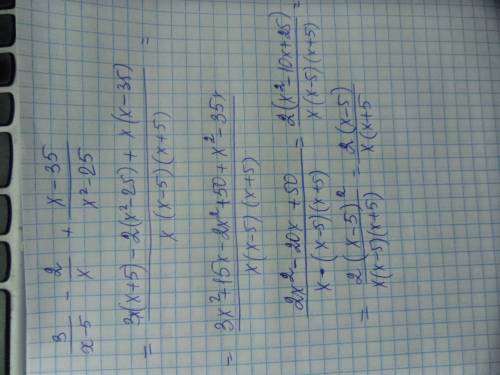 3/(x-5) - 2/x + (x-35)/(x²-25)
= (3x(x+5) - 2(x²-25) + x(x-35))/(x(x-5)(x+5)) =
= (3x²+15x-2x²+50+x²-35x)/(x(x-5)(x+5))
(2x²-20x+50)/(x-(x-5)(x+5)) = 2(x²-10x+25)/(x(x-5)(x+5)) =
= 2(x-5)²/(x(x-5)(x+5)) = 2(x-5)/(x(x+5